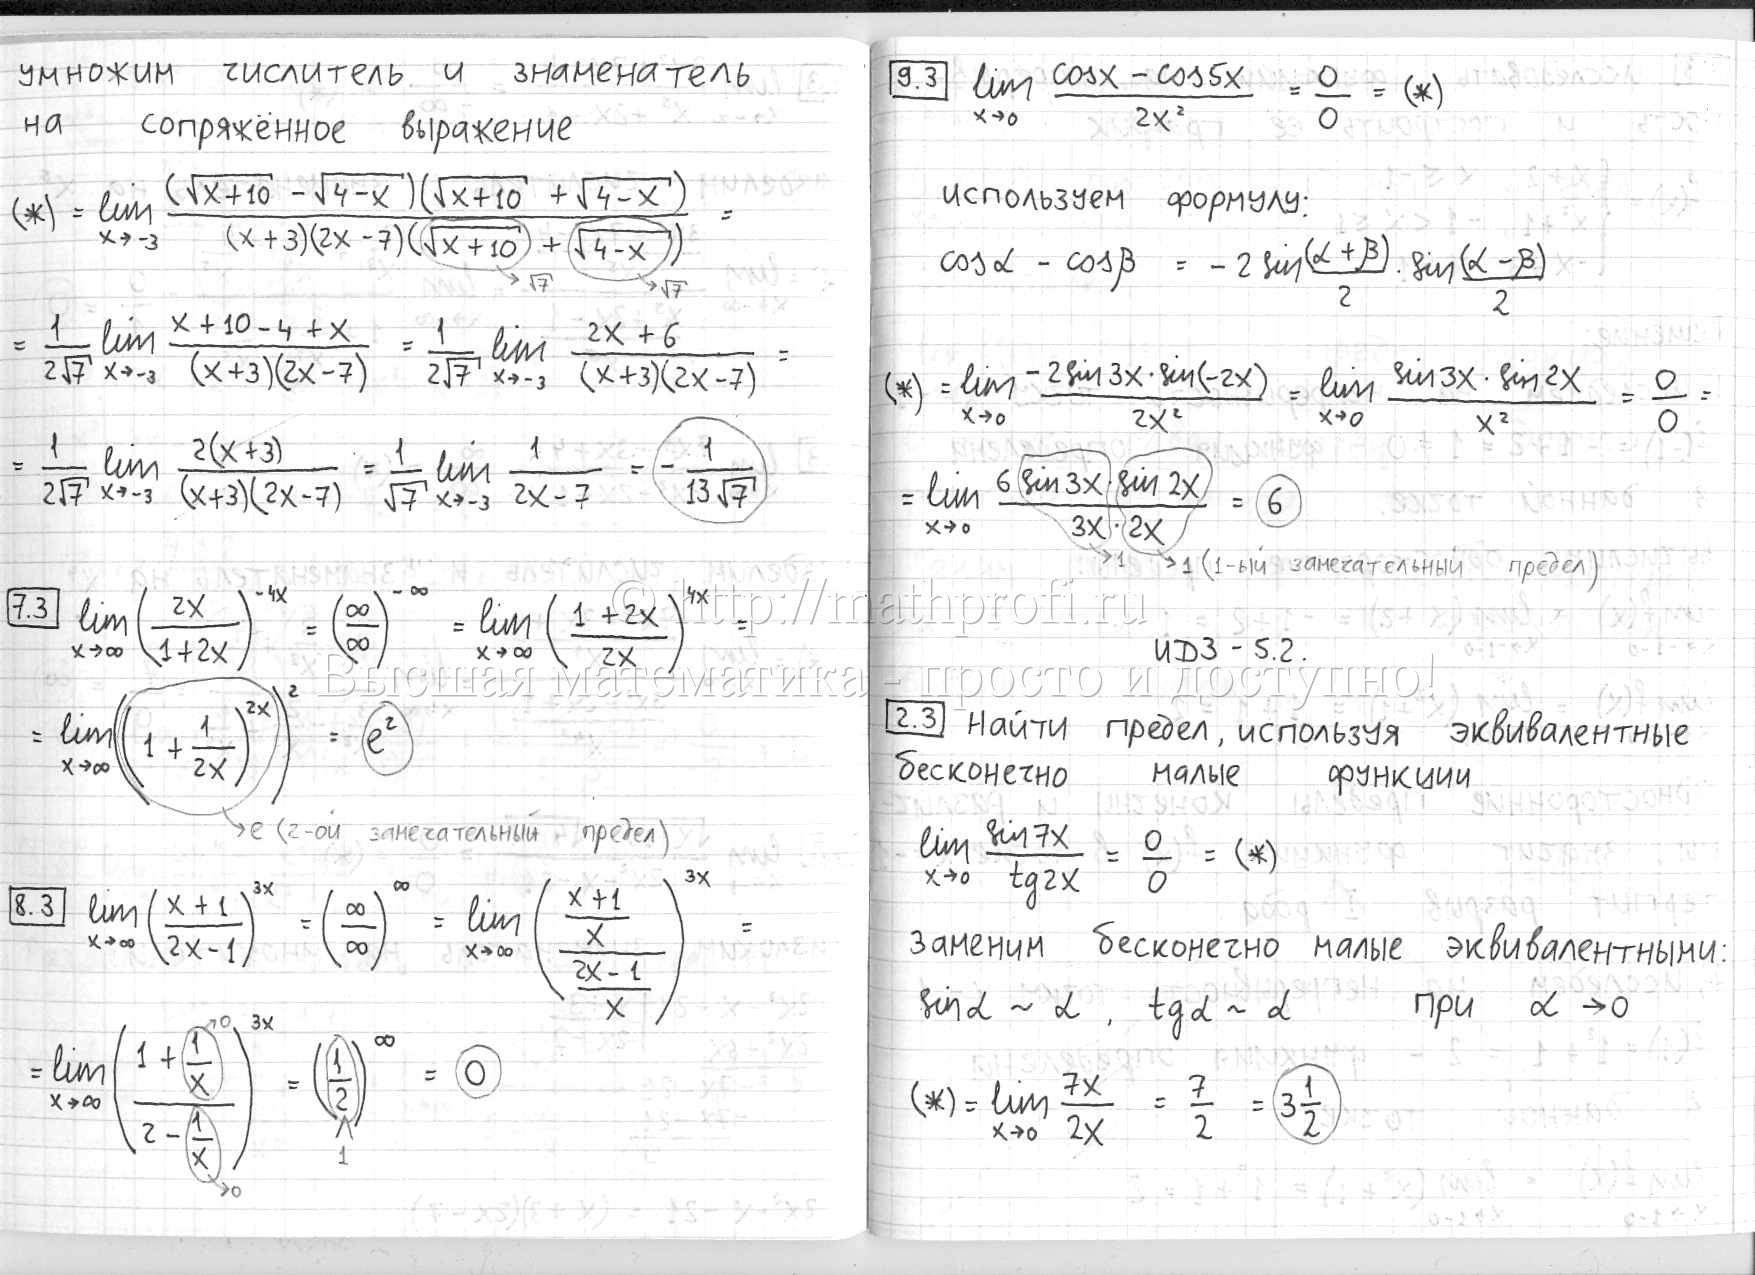 умножим числитель и знаменатель
на сопряжённое выражение
(*) = lim x→-3 (√(x+10) - √(4-x))(√(x+10) + √(4-x)) / (x+3)(2x-7)(√(x+10) + √(4-x)) =
→√7 →√7
= 1/(2√7) lim x→-3 (x+10-4+x) / (x+3)(2x-7) = 1/(2√7) lim x→-3 (2x+6) / (x+3)(2x-7) =
= 1/(2√7) lim x→-3 2(x+3) / (x+3)(2x-7) = 1/√7 lim x→-3 1/(2x-7) = -1/(13√7)
7.3 lim x→∞ (2x/(1+2x))^(-4x) = (∞/∞)^(-∞) = lim x→∞ ((1+2x)/2x)^(4x) =
= lim x→∞ ((1 + 1/2x)^(2x))^2 = e²
→ e (2-ой замечательный предел)
8.3 lim x→∞ ((x+1)/(2x-1))^(3x) = (∞/∞)^∞ = lim x→∞ (((x+1)/x) / ((2x-1)/x))^(3x) =
→0
= lim x→∞ ((1 + 1/x) / (2 - 1/x))^(3x) = (1/2)^∞ = 0
→0
^
1
9.3 lim x→0 (cosx - cos5x) / 2x² = 0/0 = (*)
используем формулу:
cosα - cosβ = -2 sin (α+β)/2 · sin (α-β)/2
(*) = lim x→0 -2sin3x·sin(-2x) / 2x² = lim x→0 sin3x · sin2x / x² = 0/0 =
= lim x→0 6 sin3x·sin2x / 3x·2x = 6
→1 →1 (1-ый замечательный предел)
© http://mathprofi.ru
ИДЗ - 5.2.
Высшая математика - просто и доступно!
2.3 Найти предел, используя эквивалентные
бесконечно малые функции
lim x→0 sin7x / tg2x = 0/0 = (*)
Заменим бесконечно малые эквивалентными:
sinα ~ α, tgα ~ α при α → 0
(*) = lim x→0 7x/2x = 7/2 = 3 1/2